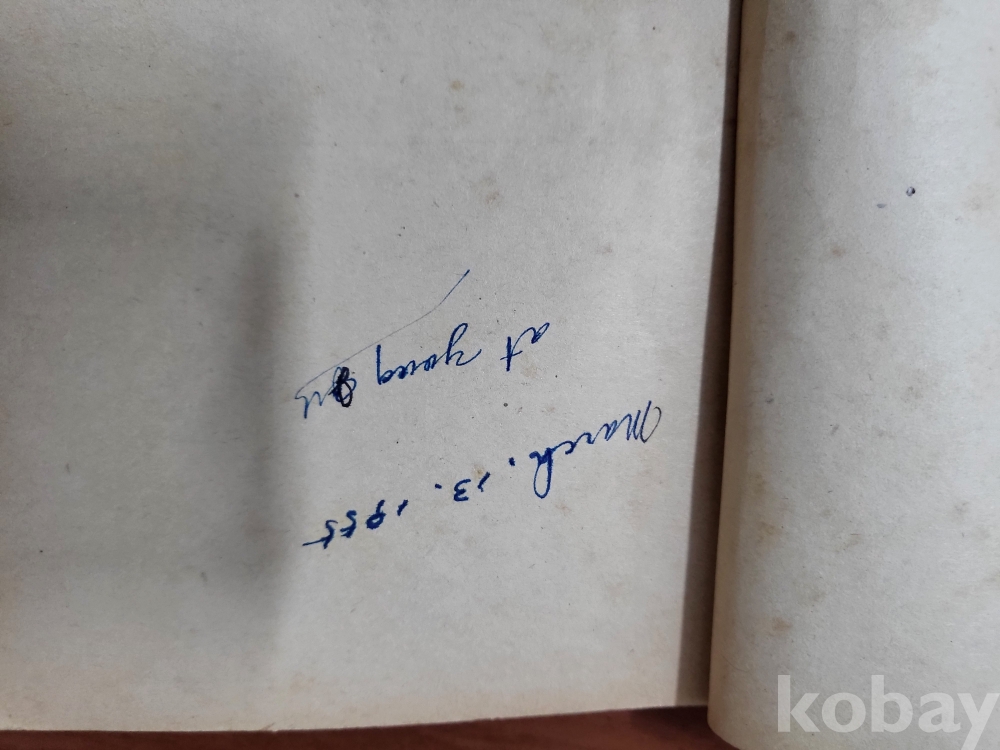 March. 13. 1955
at young
kobay